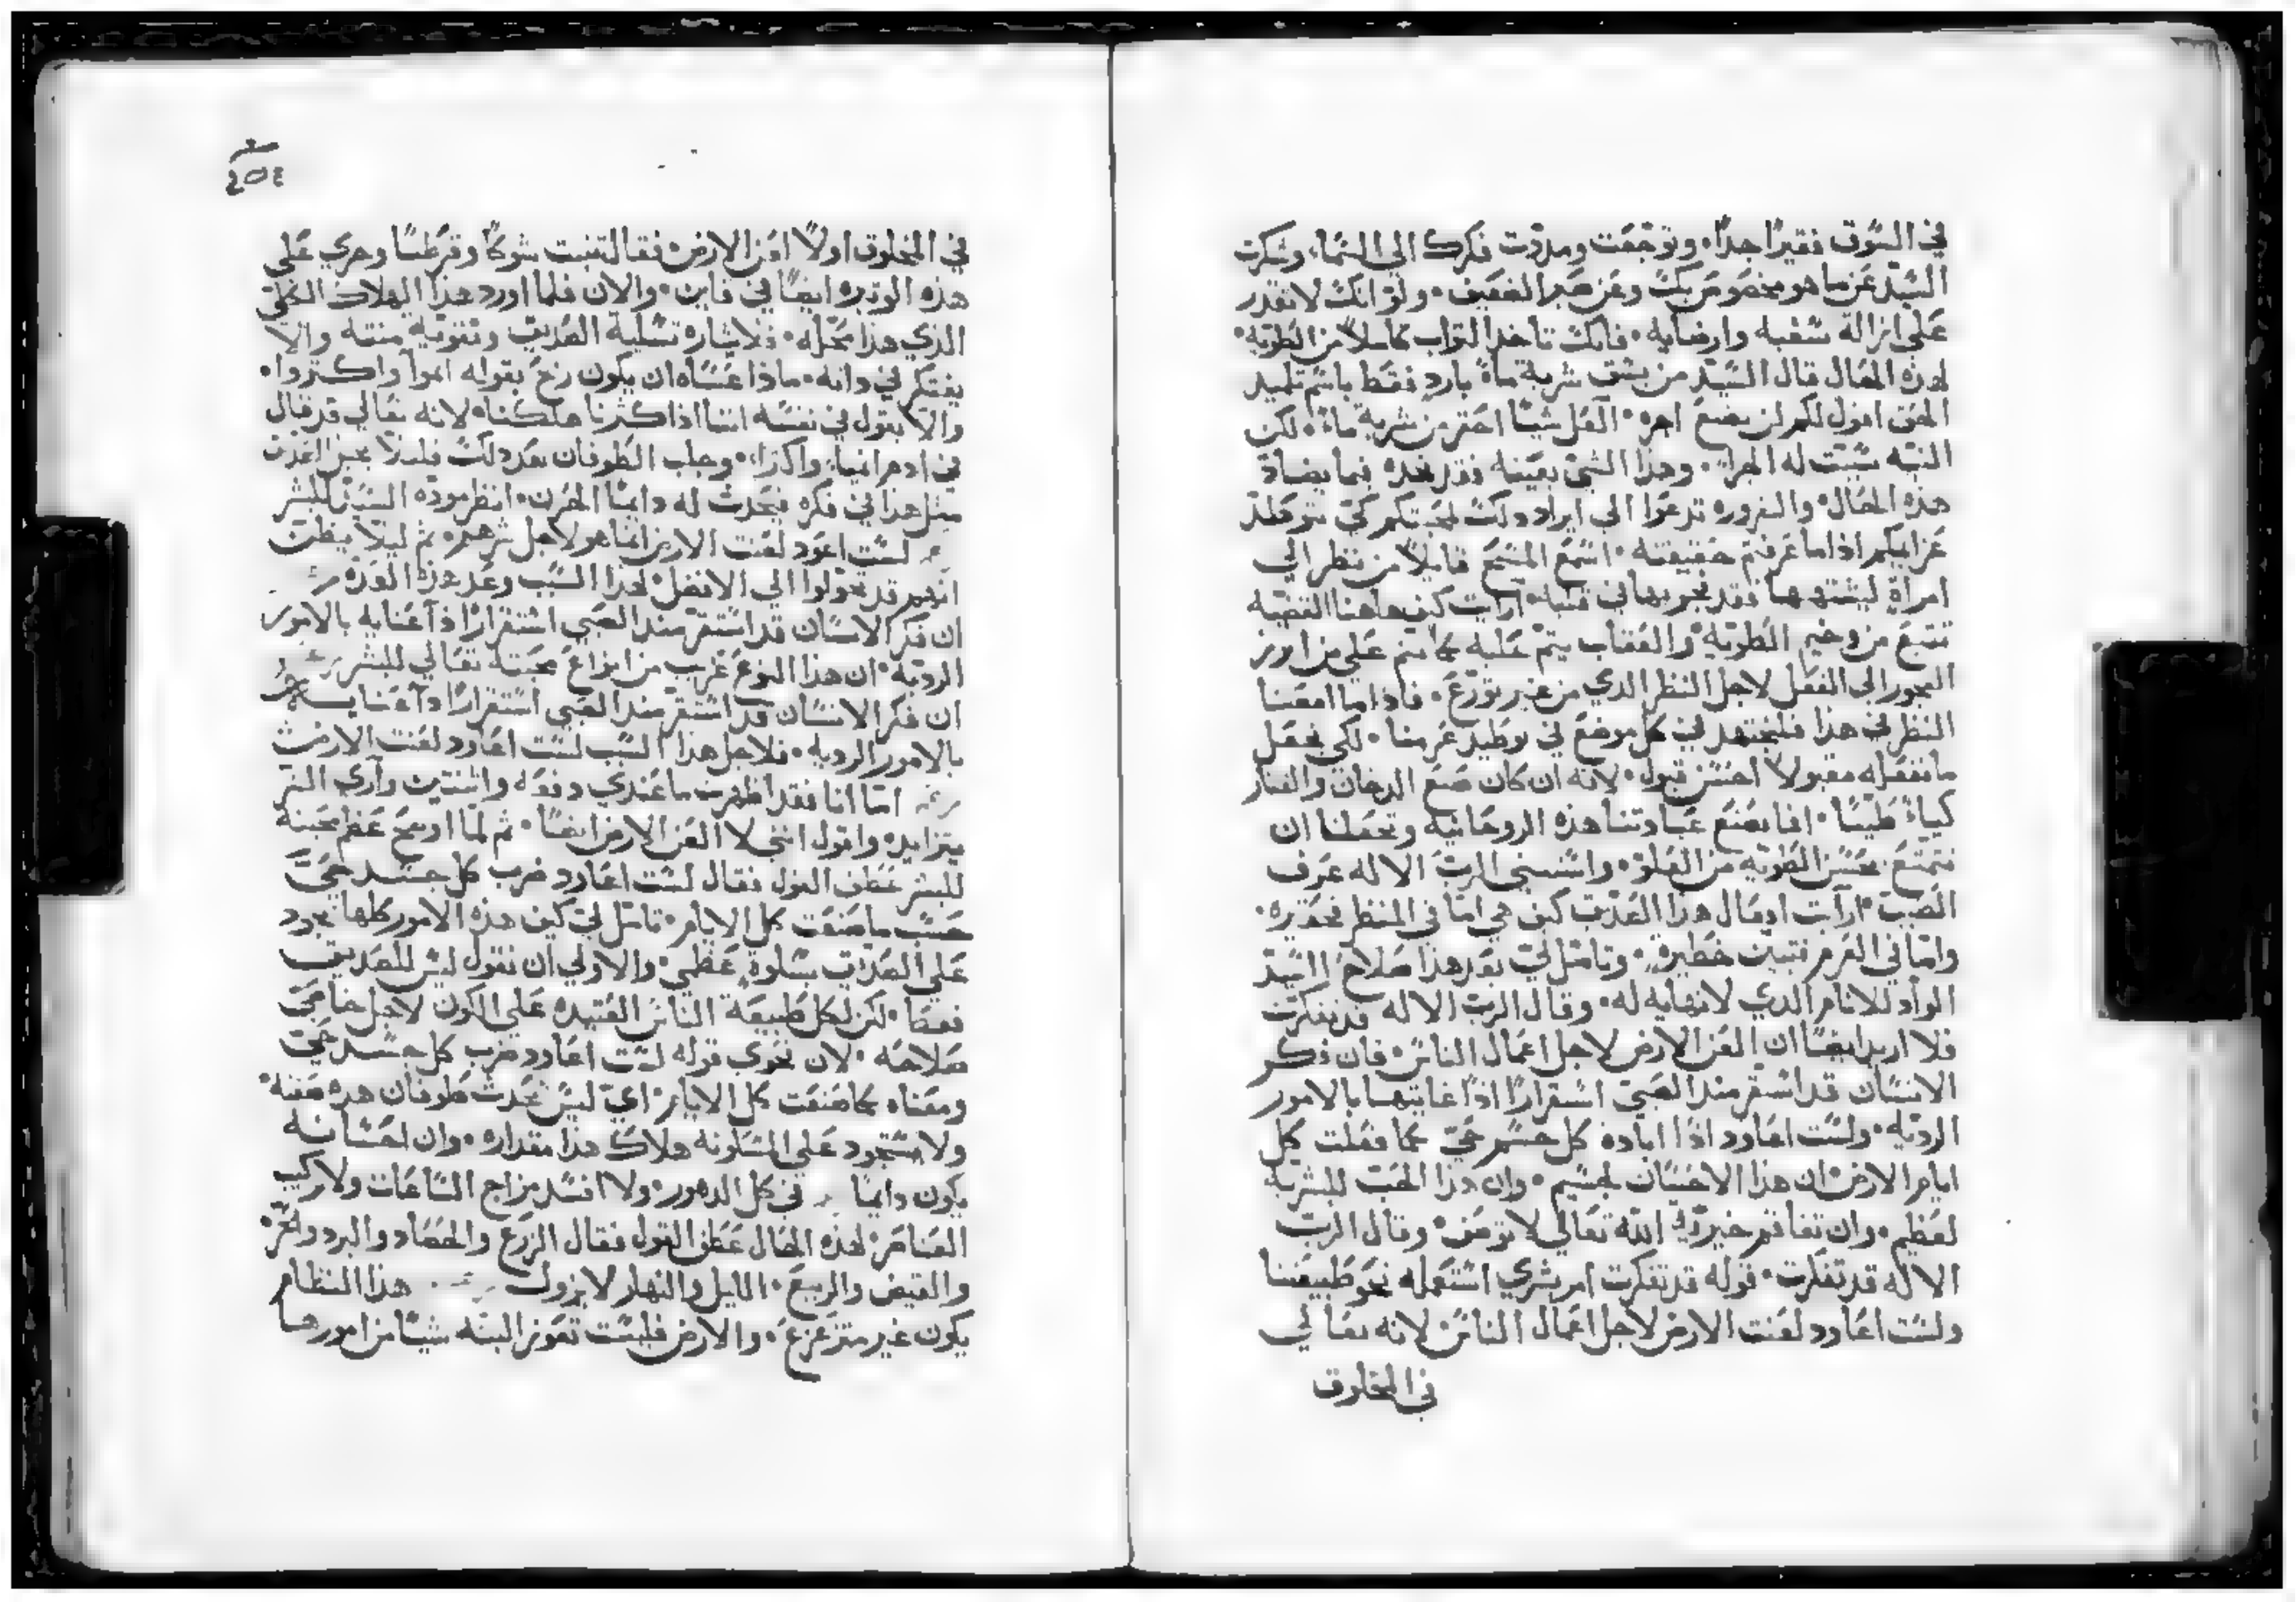 في السوق فقيرًا جدًا، وتوجعت ومددت فكرك الي السماء، وشكرت
السيد عن ما هو مخصوص بك وعن صبر الضعيف، ولو انك لا تقدر
علي ازالة سغبه وارضايه، فانك تاخذ الثواب كاملاً من الطويه،
لهذه الحال قال السيد من يسق شربة ماءً بارد فقط باسم تلميد
الحق اقول لكم لن يضيع اجره، العل شيًا احقر من شربة ماء، لكن
النيه سببت له الجزا، وهذا الشي بعينه فقد نجده فيما يضاد
هذه الحال، والضروره تدعوا الي ايراد دلك لمحبتكم كي تتوطد
عزايمكم اذا ما عرفتم حقيقته، اسمع المسيح قايلاً من نظر الي
امراةٍ ليشتهيها فقد فجر بها في قلبه، ارايت كيف هاهنا القضيه
تتبع من وخيم الطويه، والعقاب يتم عليه كما يتم علي من ابرز
الفجور الي الفعل لاجل النظر الذي من غير تورع، فاذا ما امعنا
النظر في هذا فلنجتهد في كل موضع في توطيد عزمنا، لكي نجعل
ما نفعله مقبولاً احسن قبول، لانه ان كان صنع الدخان والقتار
كياءً طيبًا، افما يصنع عبادتنا هذه الروحانيه وتجعلنا ان
نتمتع بحسن الطويه من العلو، واستنسي الرب الاله عرف
الطيب، ارايت افعال هذا الصديق كيف هي اما في المنظر فحقيره،
واما في العزم فتبين خطيرة، وتامل لي بعد هذا صلاح السيد
الواد للانام الذي لا نهايه له، وقال الرب الاله قد تفكرت
فلا اريد ايضًا ان العن الارض لاجل اعمال الناس، فان فكر
الانسان قد استقر منذ الصبي استقرارًا اذا غايتها بالامور
الرديه، ولست اعاود اذًا ابادة كل جسم حي كما فعلت كل
ايام الارض، ان هذا الاحسان لجسيم، وان هذا الحب للبشريه
لعظيم، وان تفاقم خيرية الله تعالي لا توصف، وقال الرب
الاله قد تفكرت، قوله قد تفكرت امر بشري استعمله نحو طبيعتنا
ولست اعاود لعنت الارض لاجل اعمال الناس، لانه تعالي
في المخلوق
٢٥٤
في المخلوق اولاً لعن الارض فقال تنبت شوكًا وقرطبًا وجري علي
هذه الوتيره ايضًا في قاين، والان فلما اورد هذا الهلاك الكلي
الذي هذا محله، فلايثاره تسلية الصديق وتقوية منته والا
يفتكر في داته، ماذا عساه ان يكون ربح بقوله انموا واكثروا،
والا يقول في نفسه اننا اذا كثرنا هلكنا، لانه تعالي قد قال
في ادم انموا، واكثروا، وجلب الطوفان بعد دلك فليلاً يجيز الصديق
مثل هذا في فكره فيحدث له دايمًا الحزن، انظر مودة السيد للبشر
لست اعود لعنت الارض انما هو لاجل شرهم، ثم ليلا يظن
انهم قد تحولوا الي الافضل لهذا السبب وعد هذا العده
ان فكر الانسان قد استقر منذ الصبي استقرارًا ذا عنايه بالامور
الرديه، ان هذا النوع غريب من انواع محبته تعالي للبشر
ان فكر الانسان قد استقر منذ الصبي استقرارًا ذا عنايه
بالامور الرديه، فلاجل هذا السبب لست اعاود لعنت الارض
اما انا فقد اظهرت ما عندي دفعه واثنتين وأري الشر
يتزايد، واقول انني لا العن الارض ايضًا، ثم لما اوضح عظم محبته
للبشر عطف القول فقال لست اعاود ضرب كل جسد حي
حسب ما صنعت كل الايام، تامل لي كيف هذه الامور كلها تجود
علي الصديق بسلوة عظمي، والاولي ان نقول ليس للصديق
فقط، لكن لكل طبيعة الناس العتيده علي الكون لاجل خاصي
صلاحه، لان نحوي قوله لست اعاود ضرب كل جسد حي
ومعناه كما صنعت كل الايام، اي ليس يحدث طوفان هذه صفته
ولا يستجود علي المسكونه هلاك هذا مقداره، وان احسانه
يكون دايمًا في كل الدهور، ولا افسد مزاج الساعات ولا ركب
العناصر، لهذه الحال عطف القول فقال الزرع والحصاد والبرد والحر
والقيض والربيع، الليل والنهار لا يزول هذا النظام
يكون غير متزعزع، والارض فليست تعوز البته شيًا من امورها